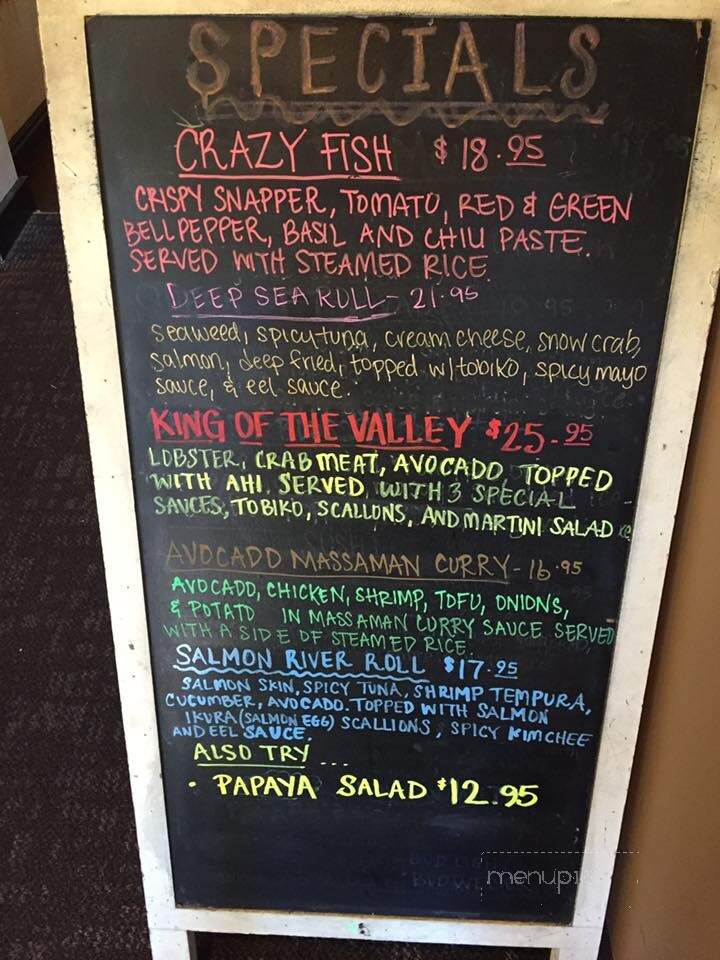 SPECIALS
CRAZY FISH $18.95
CRISPY SNAPPER, TOMATO, RED & GREEN
BELLPEPPER, BASIL AND CHILI PASTE.
SERVED WITH STEAMED RICE
DEEP SEA ROLL- 21.95
Seaweed, spicy tuna, cream cheese, snow crab,
salmon, deep fried, topped w/tobiko, spicy mayo
sauce, & eel sauce.
KING OF THE VALLEY $25.95
LOBSTER, CRAB MEAT, AVOCADO, TOPPED
WITH AHI. SERVED WITH 3 SPECIAL
SAUCES, TOBIKO, SCALLONS, AND MARTINI SALAD
AVOCADO MASSAMAN CURRY- 16.95
AVOCADO, CHICKEN, SHRIMP, TOFU, ONIONS,
& POTATO IN MASSAMAN CURRY SAUCE SERVED
WITH A SIDE OF STEAMED RICE.
SALMON RIVER ROLL $17.95
SALMON SKIN, SPICY TUNA, SHRIMP TEMPURA,
CUCUMBER, AVOCADO. TOPPED WITH SALMON
IKURA (SALMON EGG) SCALLIONS, SPICY KIMCHEE
AND EEL SAUCE.
ALSO TRY ...
• PAPAYA SALAD $12.95